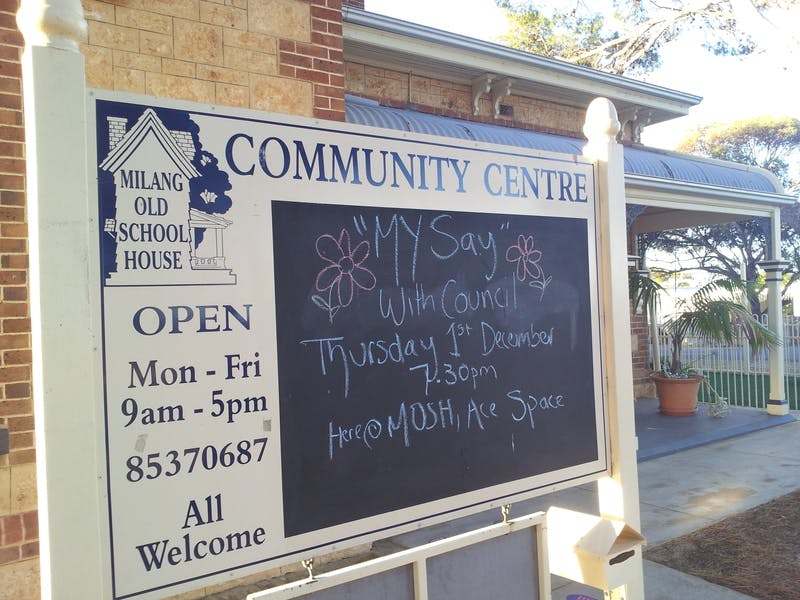 MILANG
OLD
SCHOOL
HOUSE
COMMUNITY CENTRE
OPEN
Mon - Fri
9am - 5pm
85370687
All
Welcome
"MY Say"
With Council
Thursday 1st December
7.30pm
Here@MOSH, Ace Space